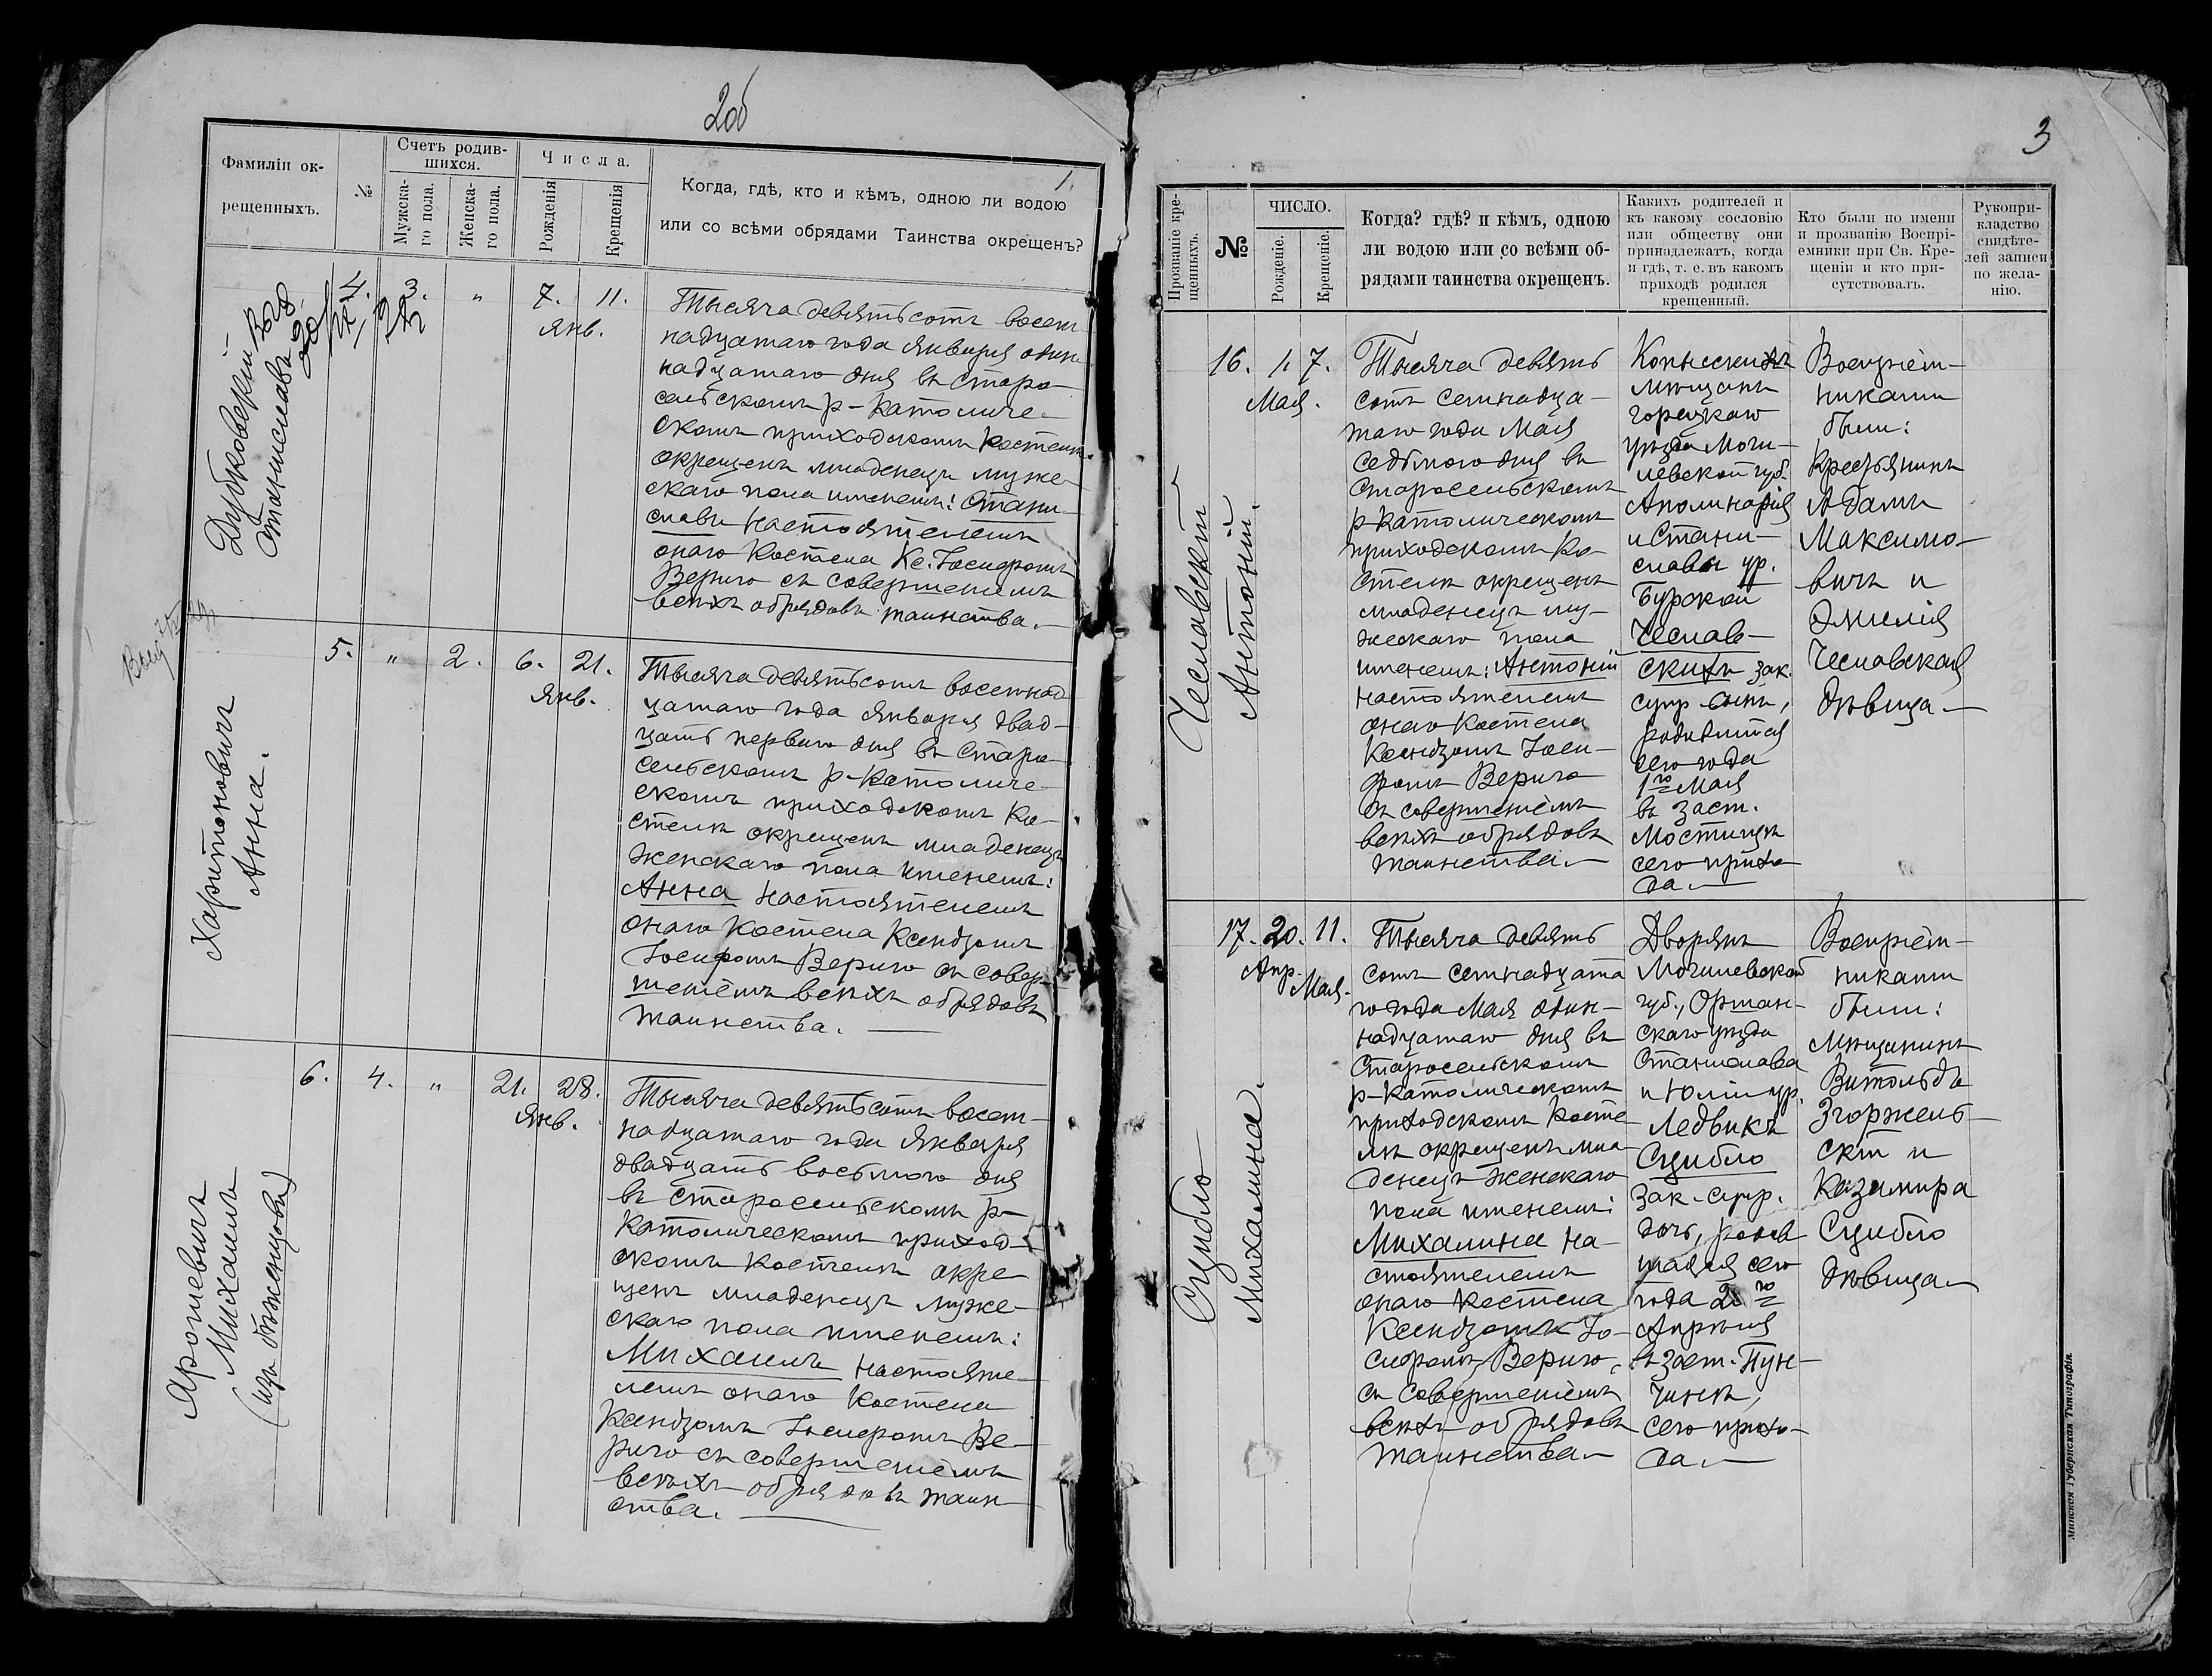 2об
Фамиліи ок-
рещенныхъ.
№
Счетъ родив-
шихся.
Мужска-
го пола.
Женска-
го пола.
Числа.
Рожденія
Крещенія
1.
Когда, гдѣ, кто и кѣмъ, одною ли водою
или со всѣми обрядами Таинства окрещенъ?
Дубковскій
Станиславъ
4.
3.
"
7.
11.
Янв.
Тысяча девятьсотъ восем
надцатаго года Января один
надцатаго дня въ Старо-
сельскомъ р-Католиче-
скомъ приходскомъ Костелѣ
окрещенъ младенецъ муже-
скаго пола именемъ: Стани-
славъ Настоятелемъ
онаго Костела Кс. Іосифомъ
Вериго съ совершеніемъ
всѣхъ обрядовъ таинства.
Харитоновичъ
Анна.
5.
"
2.
6.
21.
Янв.
Тысяча девятьсотъ восемнад
цатаго года Января двад-
цать перваго дня въ Старо-
сельскомъ р-Католиче-
скомъ приходскомъ Ко-
стелѣ окрещенъ младенецъ
женскаго пола именемъ:
Анна Настоятелемъ
онаго Костела Ксендзомъ
Іосифомъ Вериго съ совер-
шеніемъ всѣхъ обрядовъ
таинства.
Ярошевичъ
Михаилъ
(изъ бѣженцовъ)
6.
4.
"
21.
28.
Янв.
Тысяча девятьсотъ восем-
надцатаго года Января
двадцать восьмого дня
въ Старосельскомъ р-
Католическомъ приход-
скомъ Костелѣ окре
щенъ младенецъ муже-
скаго пола именемъ:
Михаилъ Настояте-
лемъ онаго Костела
Ксендзомъ Іосифомъ Ве-
риго съ совершеніемъ
всѣхъ обрядовъ таин-
ства.
3
Прозваніе кре-
щенныхъ.
№
ЧИСЛО.
Рожденіе.
Крещеніе.
Когда? гдѣ? и кѣмъ, одною
ли водою или со всѣми об-
рядами таинства окрещенъ.
Какихъ родителей и
къ какому сословію
или обществу они
принадлежатъ, когда
и гдѣ, т. е. въ какомъ
приходѣ родился
крещенный.
Кто были по имени
и прозванію Воспрі-
емники при Св. Кре-
щеніи и кто при-
сутствовалъ.
Рукопри-
кладство
свидѣте-
лей записи
по жела-
нію.
Чеславскій
Антоній.
16.
1.
7.
Мая.
Тысяча девять
сотъ семнадца-
таго года Мая
седьмого дня въ
Старосельскомъ
р-Католическомъ
приходскомъ Ко-
стелѣ окрещенъ
младенецъ му-
жескаго пола
именемъ: Антоній
Настоятелемъ
онаго Костела
Ксендзомъ Іоси-
фомъ Вериго
съ совершеніемъ
всѣхъ обрядовъ
таинства.
Копысскихъ
мѣщанъ
горецкаго
уѣзда Моги-
левской губ.
Аполинарія
и Стани-
славы ур.
Бурской
Чеслав-
скихъ зак.
супр. сынъ,
родившійся
сего года
1го Мая
въ заст.
Мостищѣ
сего прихо-
да.
Воспріем-
никами
были:
Крестьянинъ
Адамъ
Максимо-
вичъ и
Эмилія
Чеславская
дѣвица
Сцибло
Михалина.
17.
20.
11.
Апр.
Мая.
Тысяча девять
сотъ семнадцата
го года Мая один-
надцатаго дня въ
Старосельскомъ
р-Католическомъ
приходскомъ Косте-
лѣ окрещенъ мла-
денецъ женскаго
пола именемъ:
Михалина На-
стоятелемъ
онаго Костела
Ксендзомъ Іо-
сифомъ Вериго,
съ совершеніемъ
всѣхъ обрядовъ
таинства
Дворянъ
Могилевской
губ., Оршан-
скаго уѣзда
Станислава
и Юліи ур.
Ледвикъ
Сцибло
зак. супр.
дочь, родив
шаяся сего
года 20го
Апрѣля
въ заст. Пун-
чинѣ,
сего прихо-
да.
Воспріем-
никами
были:
Мѣщанинъ
Витольдъ
Згоржель-
скій и
Казимира
Сцибло
дѣвица
Минская Губернская Типографія.